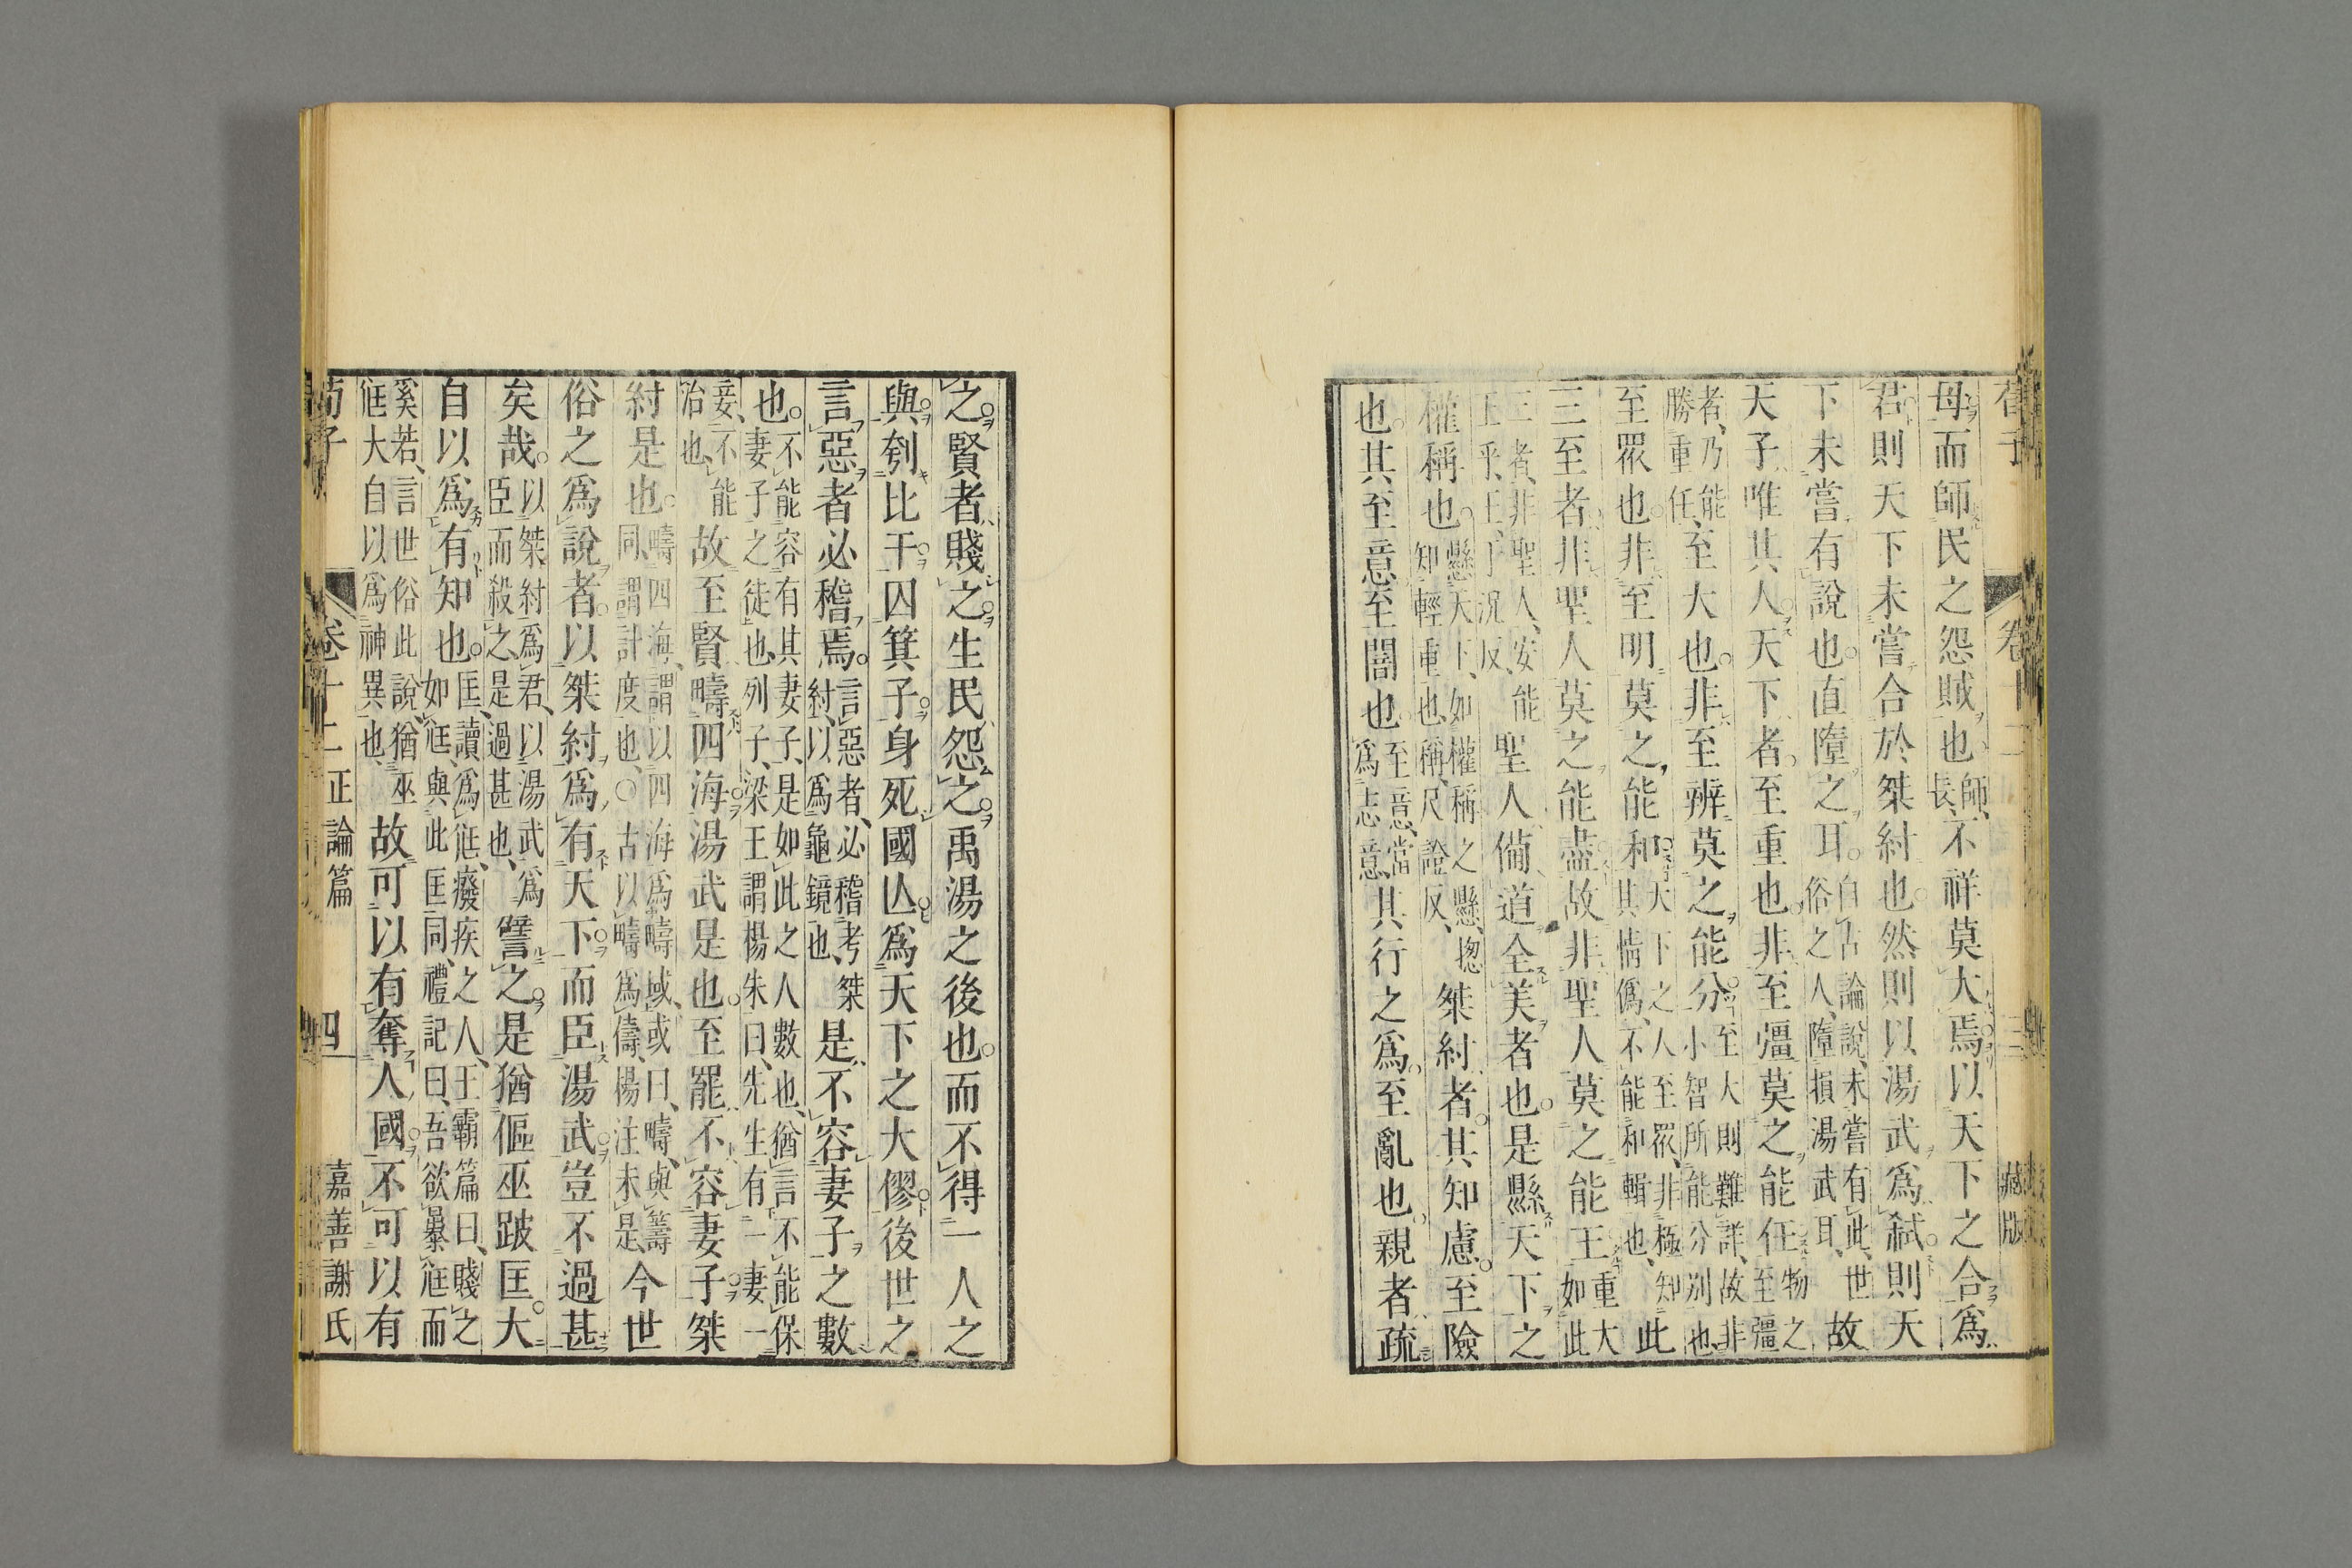 荀子　卷十二　三　藏版
母而師民之怨賊也師、長、不祥莫大焉以天下之合爲
君則天下未嘗合於桀紂也然則以湯武爲弑則天
下未嘗有說也直隳之耳自古論說、未嘗有此、世俗之人、隳損湯武耳、故
天子唯其人天下者至重也非至彊莫之能任物之至彊
者、乃能勝重任、至大也非至辨莫之能分至大則難詳、故非小智所能分別也、
至衆也非至明莫之能和天下之人至衆、非極知其情僞、不能和輯也、此
三至者非聖人莫之能盡故非聖人莫之能王重大如此
三者、非聖人、安能王乎、王、于況反、聖人備道全美者也是縣天下之
權稱也懸天下、如權稱之懸、揔知輕重也、稱、尺證反、桀紂者其知慮至險
也其至意至闇也至意、當爲志意、其行之爲至亂也親者疏
之賢者賤之生民怨之禹湯之後也而不得一人之
與刳比干囚箕子身死國亾爲天下之大僇後世之
言惡者必稽焉言惡者、必稽考桀紂、以爲龜鏡也、是不容妻子之數
也不能容有其妻子、是如此之人數也、猶言不能保妻子之徒也、列子、梁王謂楊朱曰、先生有一妻一
妾、不能治也、故至賢疇四海湯武是也至罷不容妻子桀
紂是也疇四海、謂以四海爲疇域、或曰、疇、與籌同、謂計度也、○古以疇爲儔、楊注未是、今世
俗之爲說者以桀紂爲有天下而臣湯武豈不過甚
矣哉以桀紂爲君、以湯武爲臣而殺之、是過甚也、譬之是猶傴巫跛匡大
自以爲有知也匡、讀爲尫、癈疾之人、王霸篇曰、賤之如尫、與此匡同、禮記曰、吾欲暴尫而
奚若、言世俗此說、猶巫尫大自以爲神異也、故可以有奪人國不可以有
荀子　卷十二　正論篇　四　嘉善謝氏